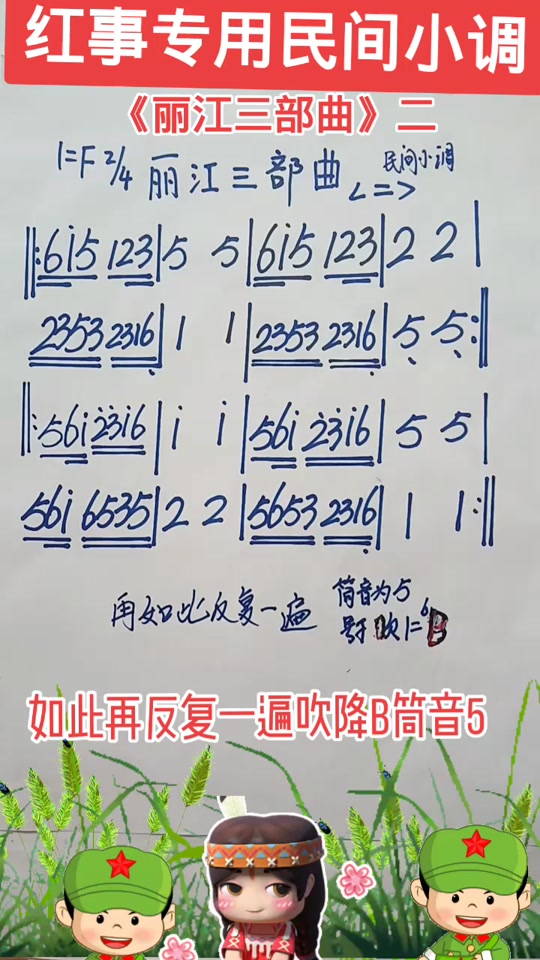 红事专用民间小调
《丽江三部曲》二
1=F 2/4 丽江三部曲 民间小调
<=>
‖:6i5 123|5 5|6i5 123|2 2|
2353 2316̣|1 1|2353 2316̣|5̣ 5̣:‖
‖:56i 2̇3̇i6|i i|56i 2̇3̇i6|5 5|
56i 6535|2 2|5653 2316̣|1 1:‖
再如此反复一遍
筒音为5
吹1=ᵇB
如此再反复一遍吹降B筒音5